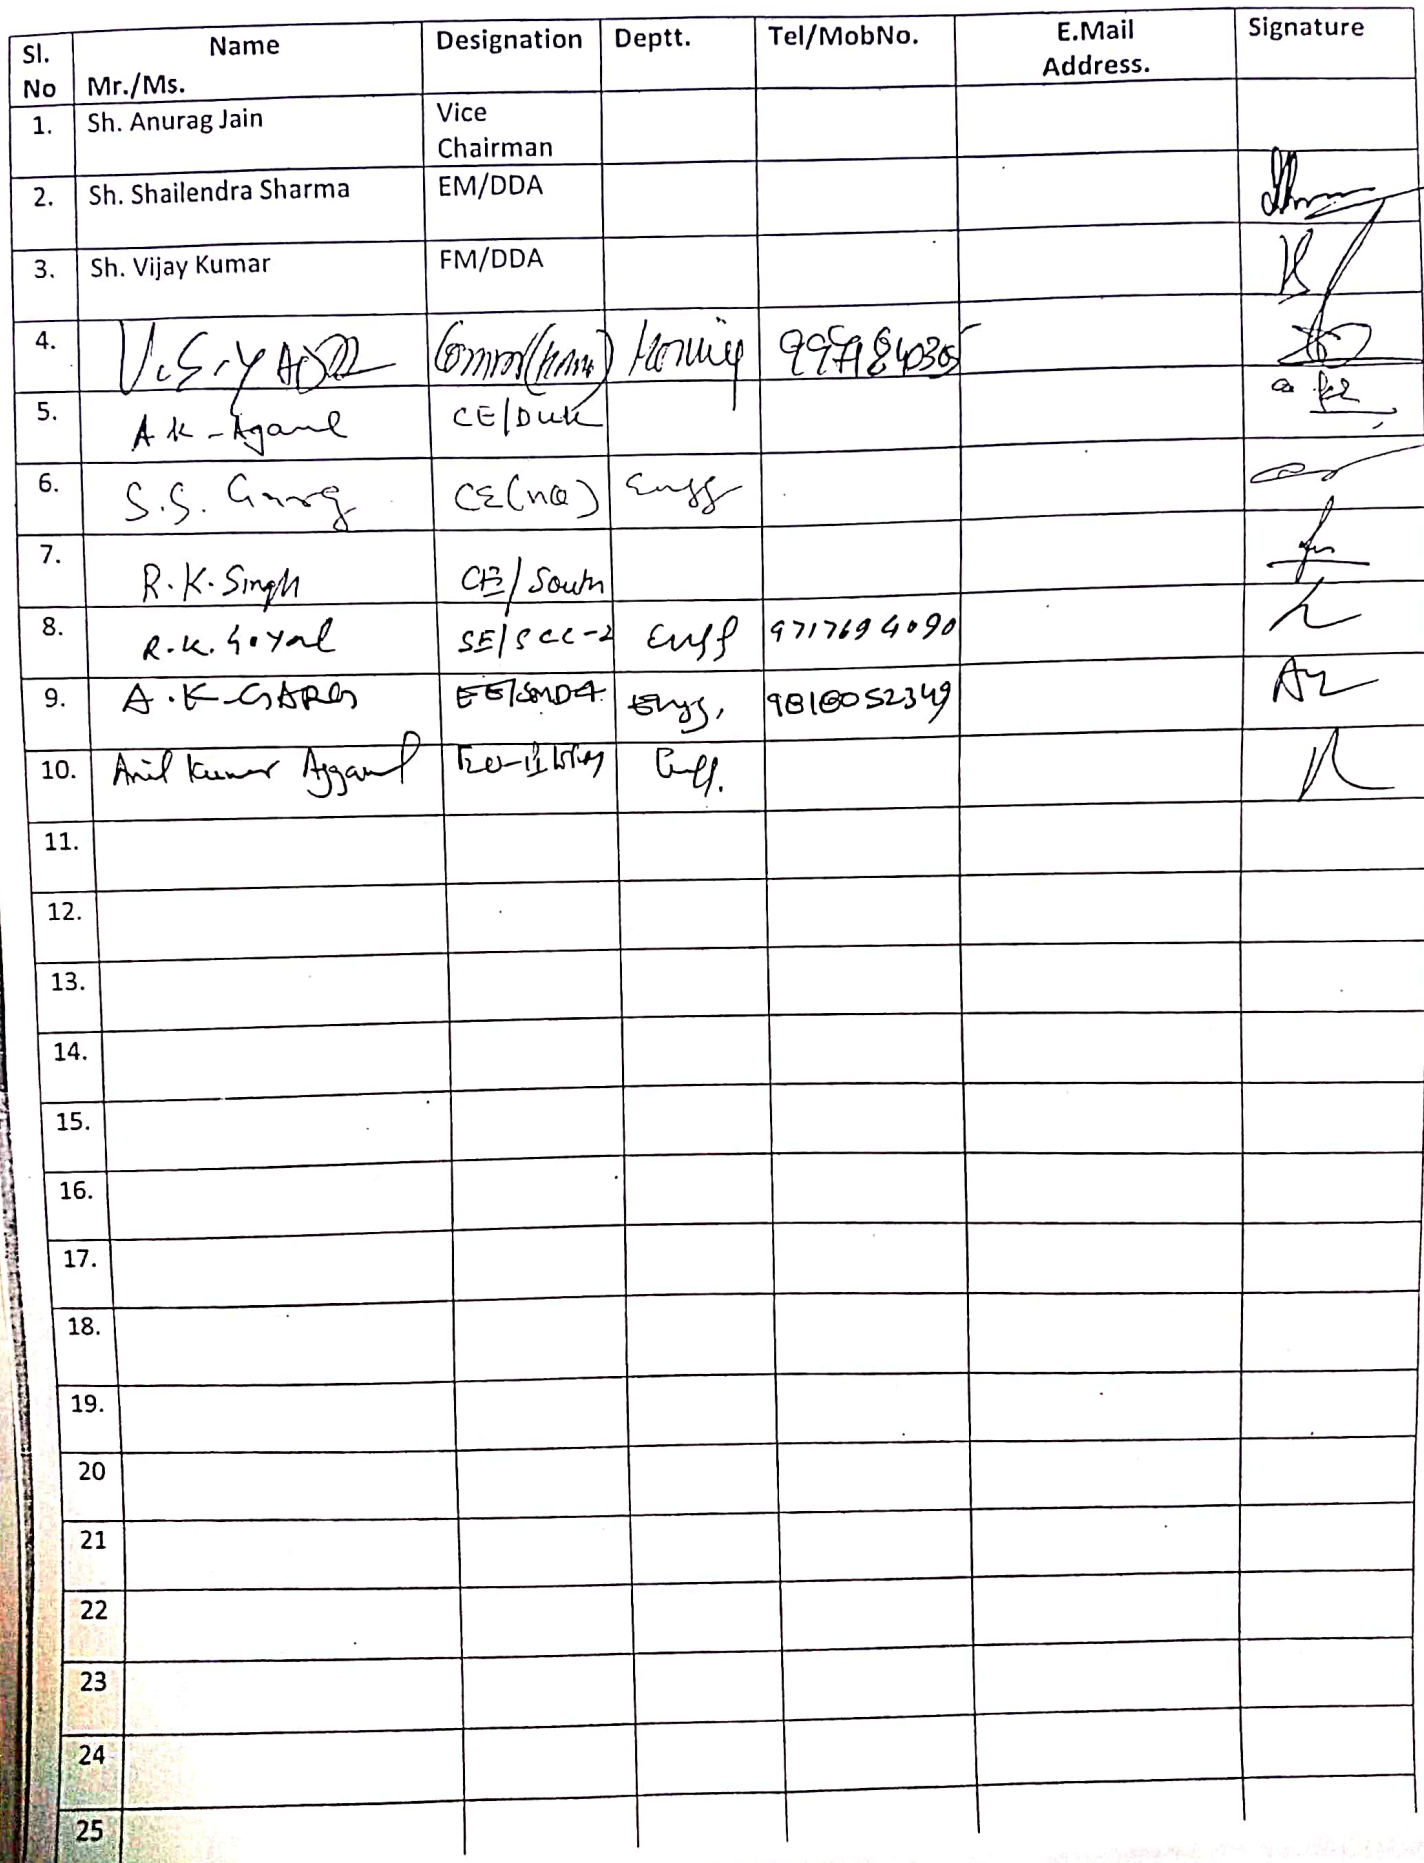 Sl. No Name Mr./Ms. Designation Deptt. Tel/MobNo. E.Mail Address. Signature
1. Sh. Anurag Jain Vice Chairman
2. Sh. Shailendra Sharma EM/DDA
3. Sh. Vijay Kumar FM/DDA
4. Housing
5. A.K-Agarwal CE/Dwk
6. S.S. Garg Engg
7. R.K. Singh CE/South
8. R.K. Goyal SE/SCC-2 Engg 9717694090
9. A.K GARG Engg. 9818052349
10. Anil Kumar Aggarwal Engg.
11.
12.
13.
14.
15.
16.
17.
18.
19.
20
21
22
23
24
25